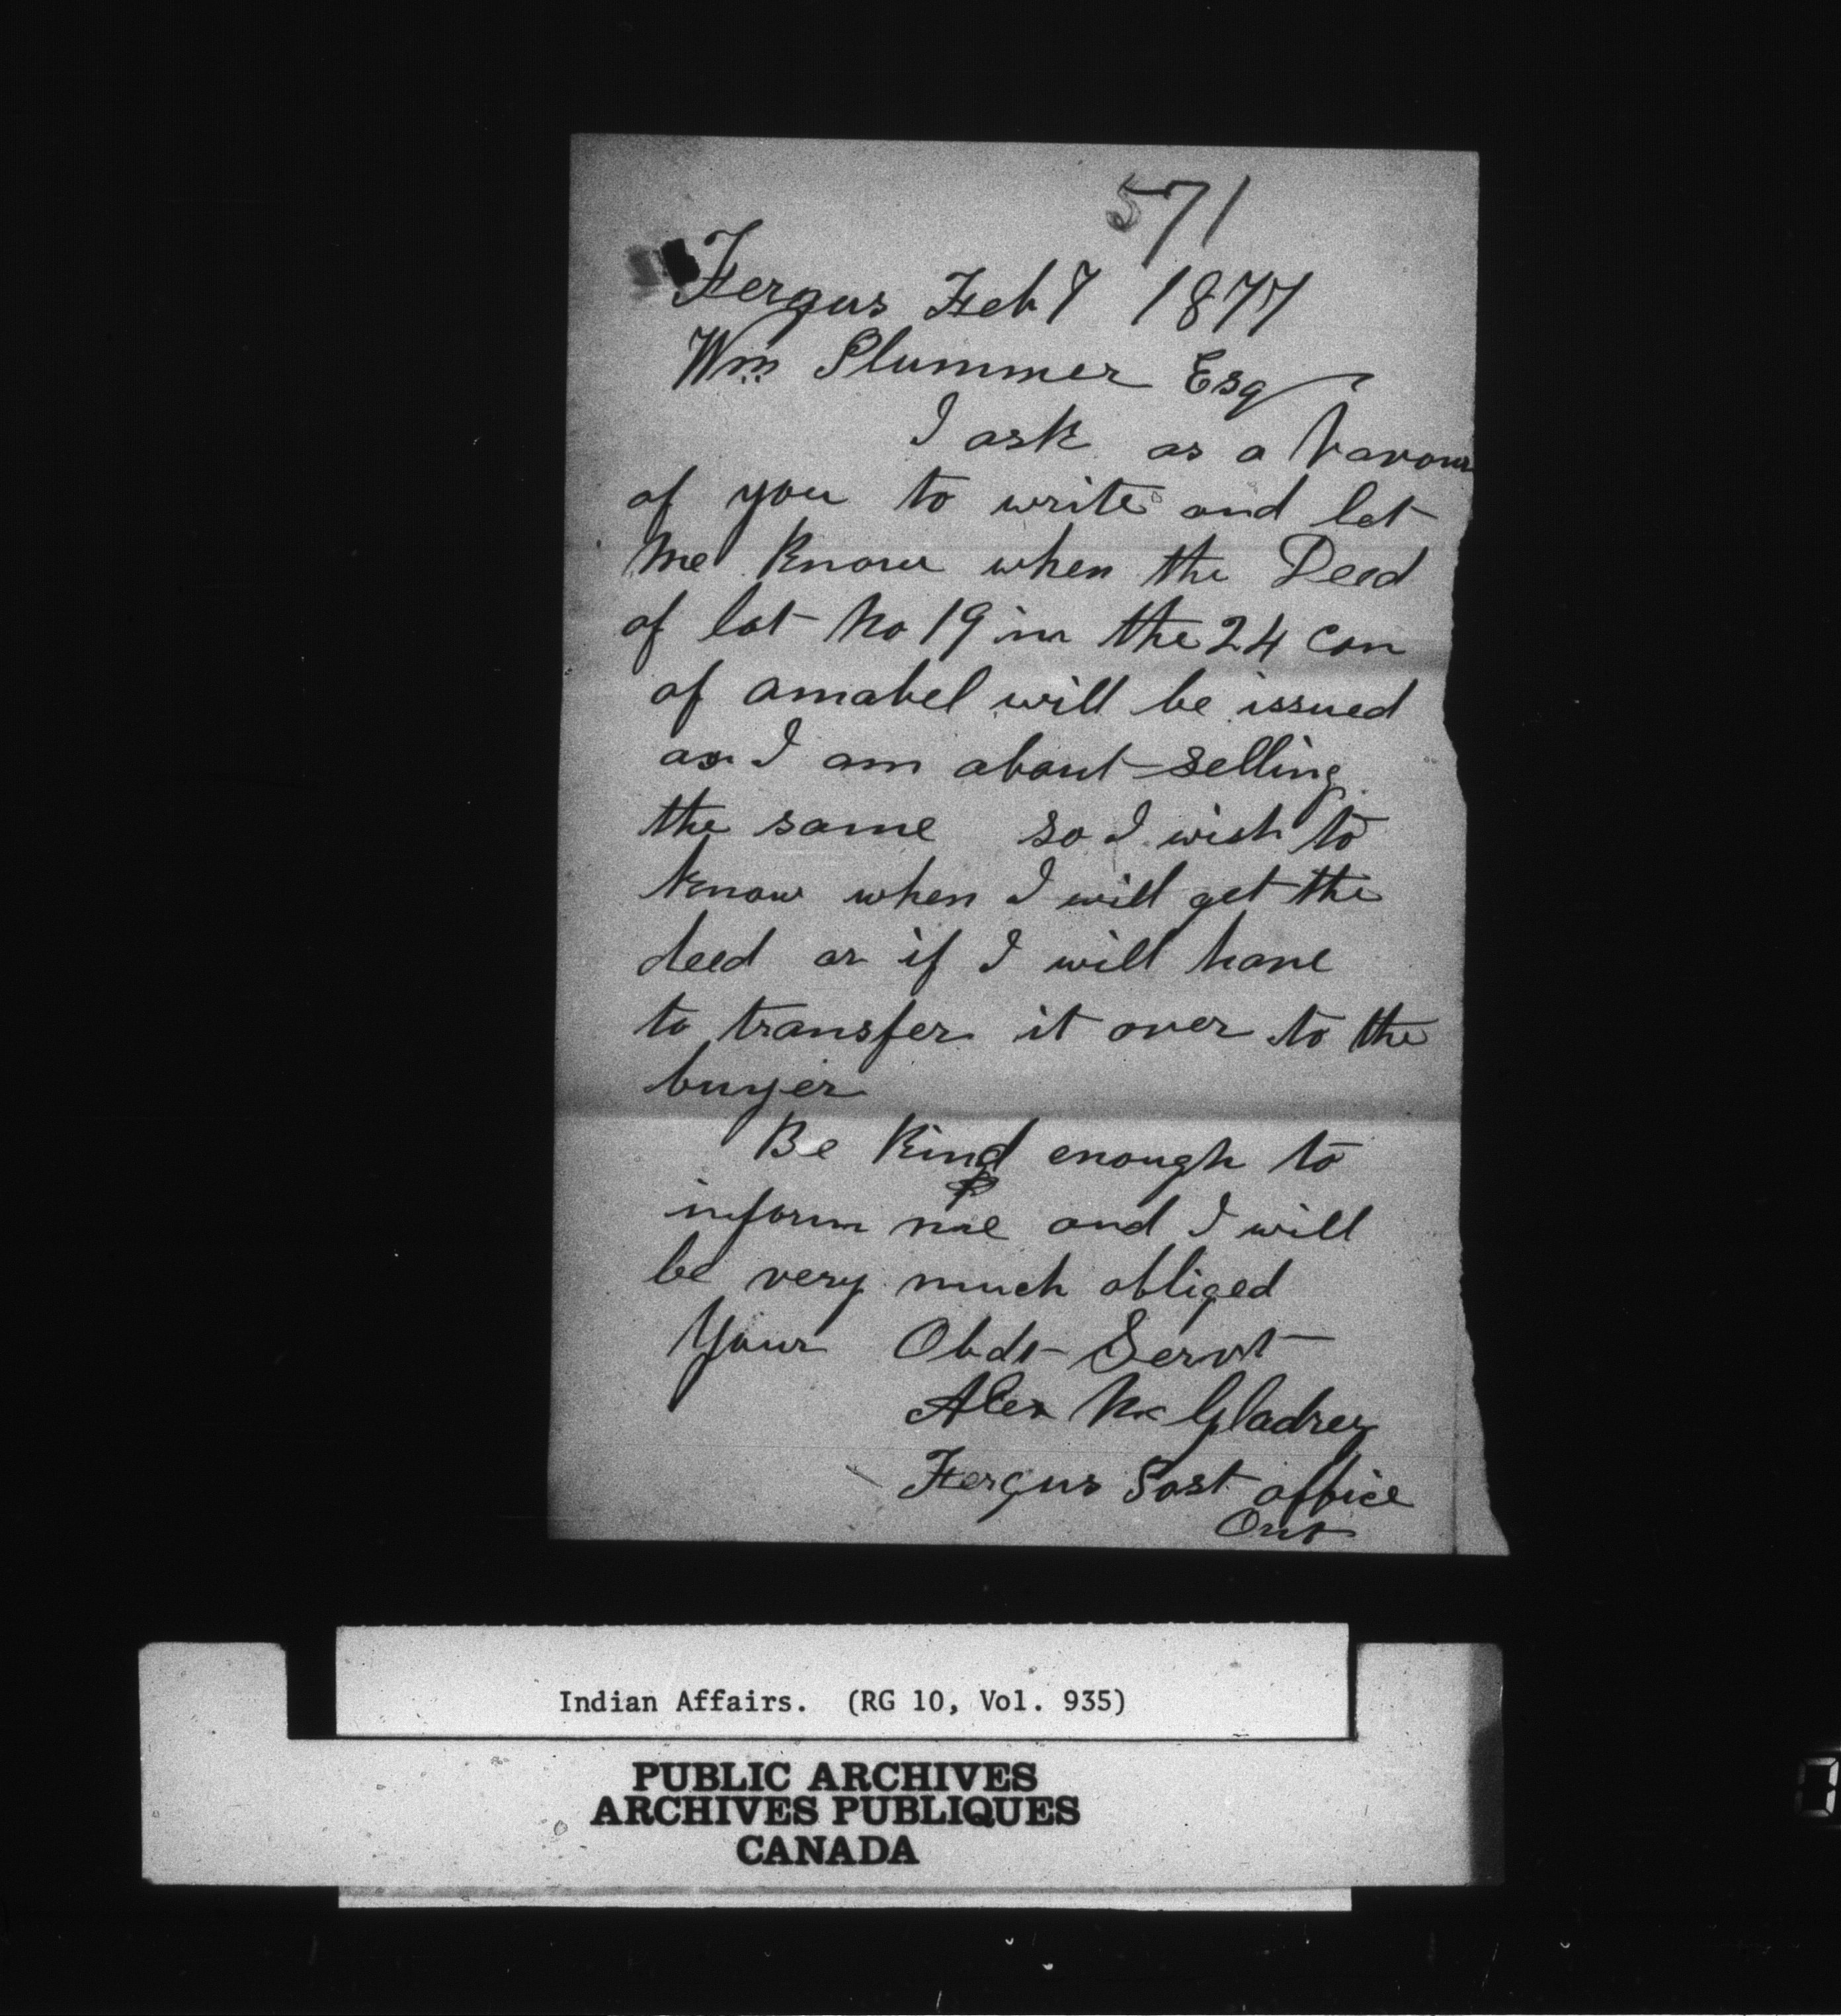 571
Fergus Feb 7 1877
Wm Plummer Esq
I ask as a favour
of you to write and let
me know when the Deed
of lot No 19 in the 24 con
of amabel will be issued
as I am about selling
the same so I wish to
know when I will get the
deed or if I will have
to transfer it over to the
buyer
Be kind enough to
inform me and I will
be very much obliged
Your Obdt Servt
Alex Mc Gladrey
Fergus Post office
Ont
Indian Affairs. (RG 10, Vol. 935)
PUBLIC ARCHIVES
ARCHIVES PUBLIQUES
CANADA